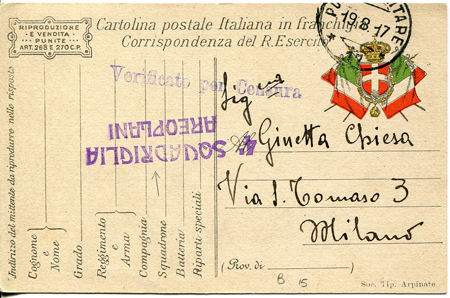 RIPRODUZIONE
E VENDITA
PUNITE
ART. 265 E 270 C.P.
Cartolina postale Italiana in franchigia
Corrispondenza del R. Esercito
19.8.17
Verificato per Censura
Sig.na
Ginetta Chiesa
Via S. Tomaso 3
Milano
(Prov. di )
SQUADRIGLIA
AREOPLANI
Indirizzo del mittente da riprodurre nelle risposte
Cognome
e
Nome
Grado
Reggimento
e
Arma
Compagnia
Squadrone
Batteria
Riparti speciali
B 15
Soc. Tip. Arpinate